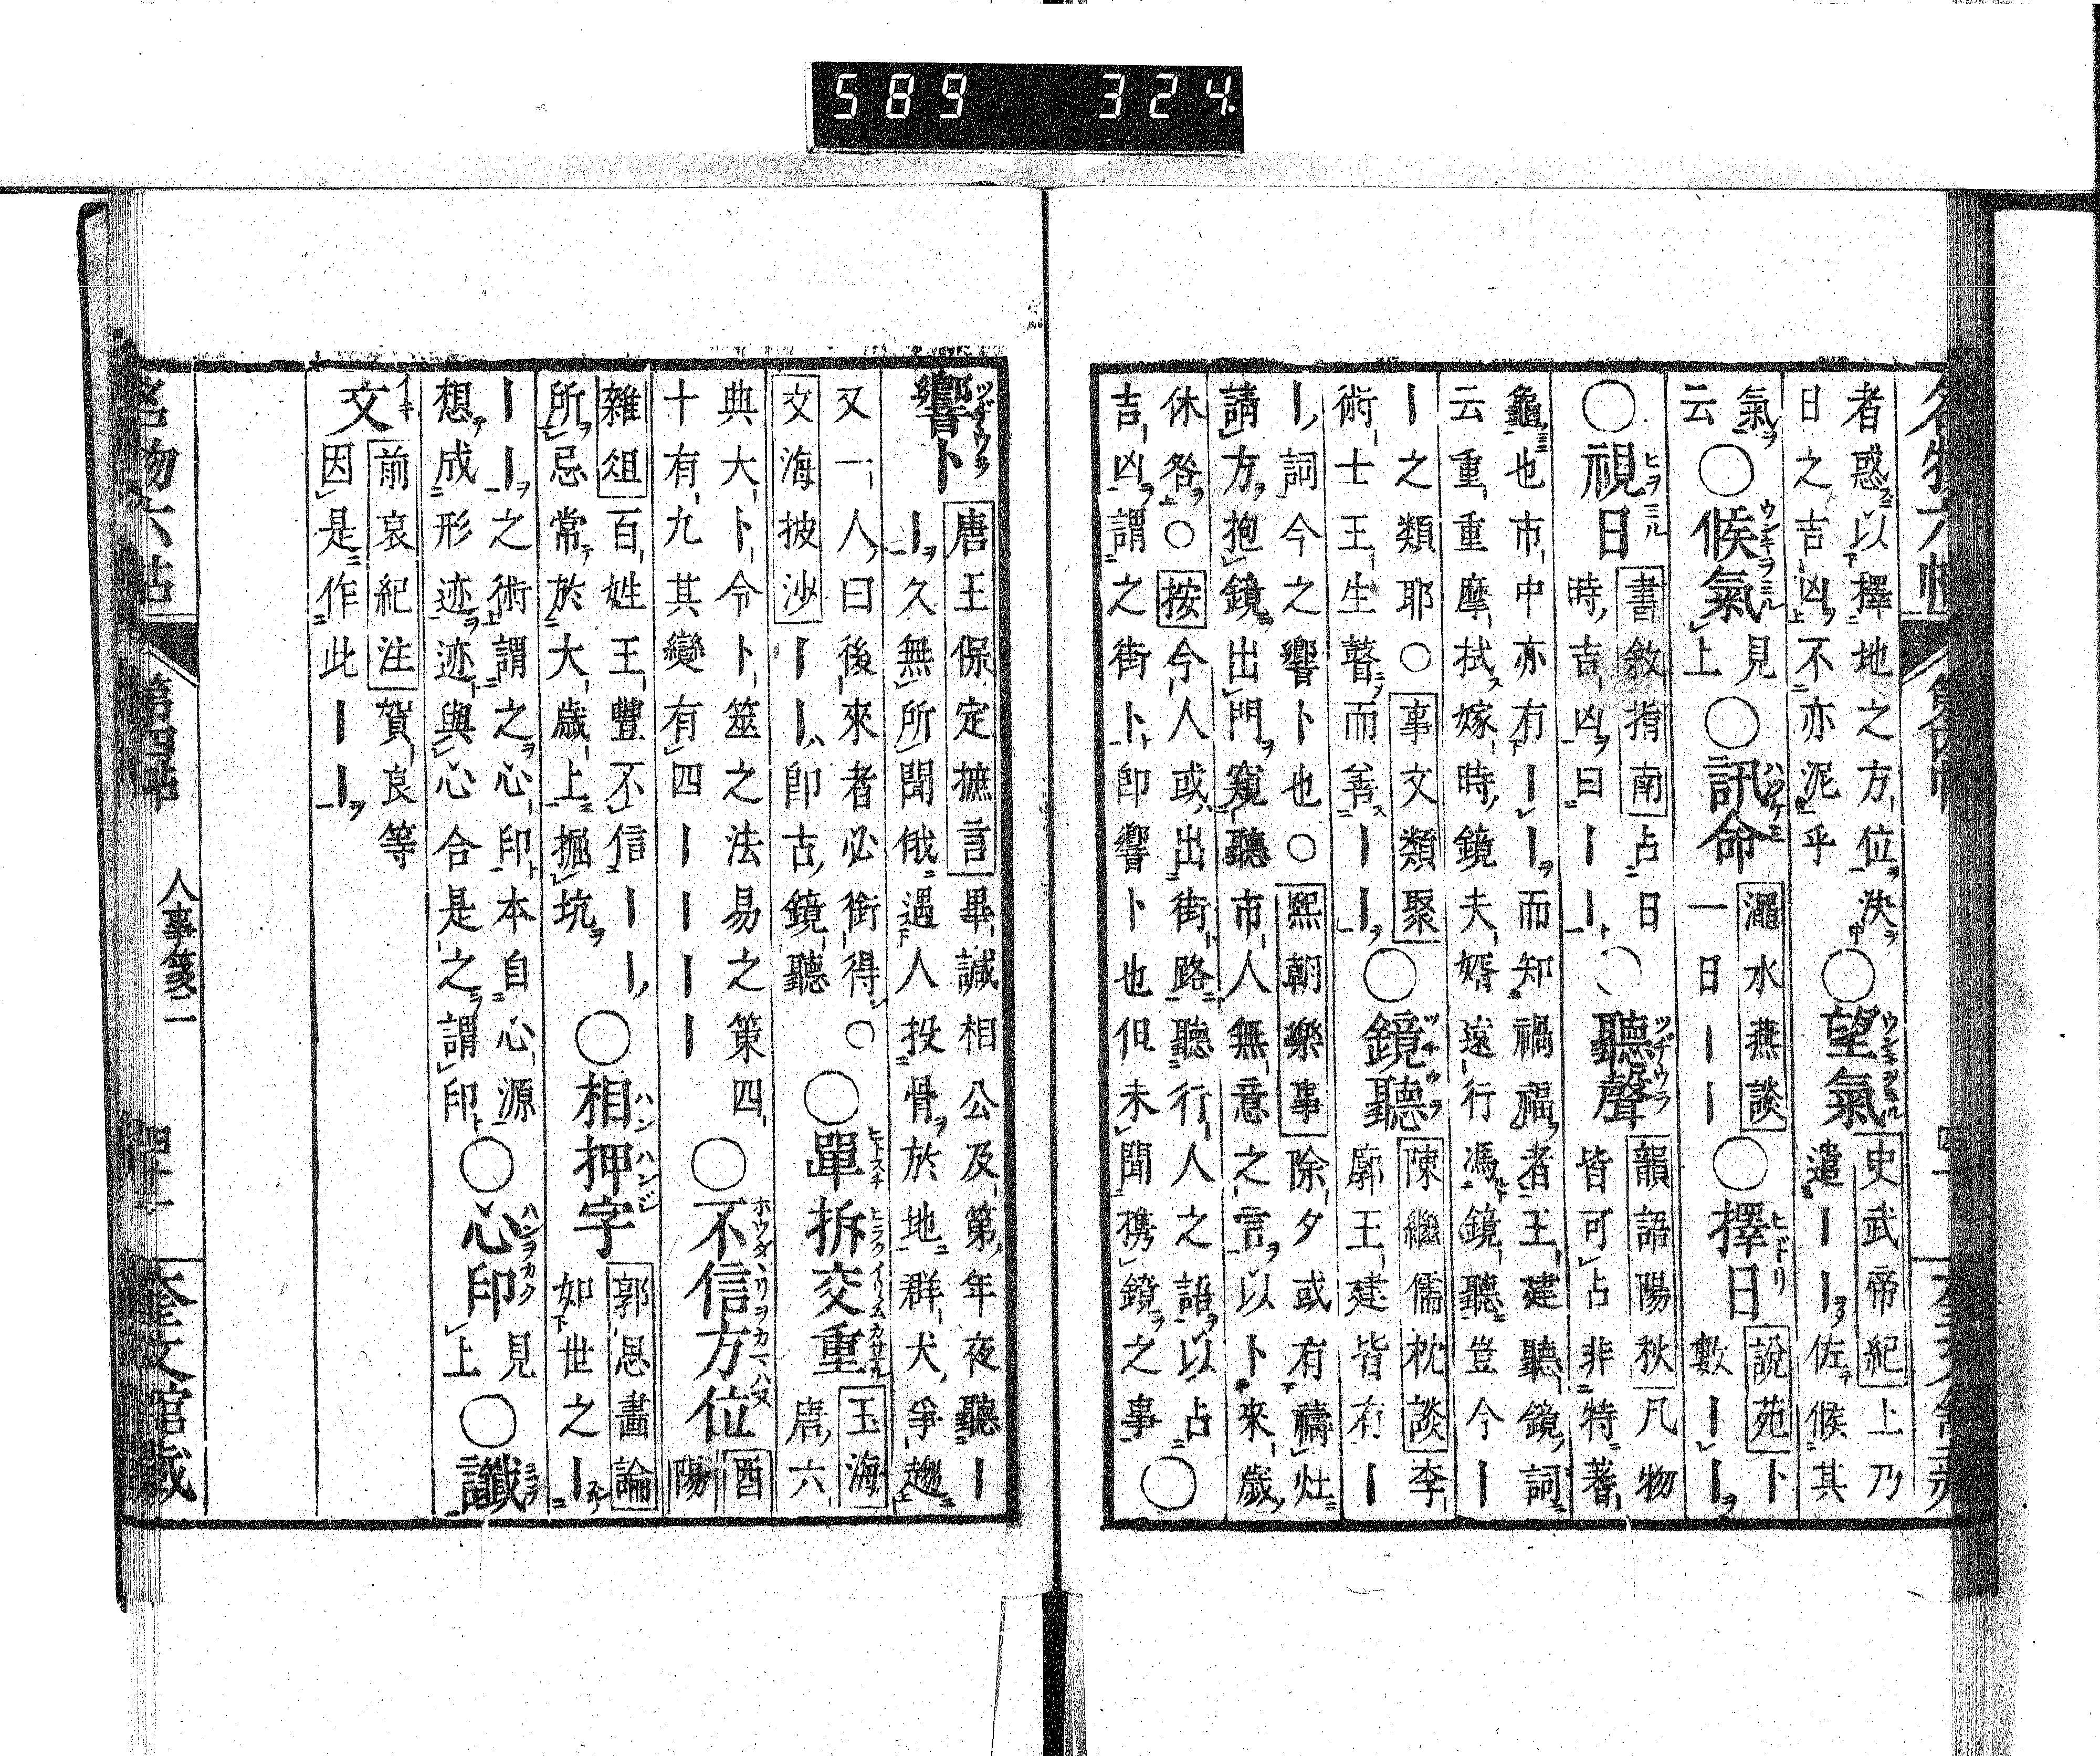 者惑以擇地之方位決
日之吉凶不亦泥乎
○望氣
史武帝紀上乃
遣｜｜佐候其
氣
云
○候氣
見
上
○訊命
澠水燕談
一日｜｜
○擇日
說苑卜
數｜｜
○視日
書敘指南占日
時吉凶曰｜｜
○聽聲
韻語陽秋凡物
皆可占非特蓍
龜也市中亦有｜｜而知禍福者王建聽鏡詞
云重重摩拭嫁時鏡夫婿遠行馮鏡聽豈今｜
｜之類耶○事文類聚
術士王生瞽而善｜｜
○鏡聽
陳繼儒枕談李
廓王建皆有｜
｜詞今之響卜也○熙朝樂事除夕或有禱灶
請方抱鏡出門窺聽市人無意之言以卜來歲
休咎○按今人或出街路聽行人之語以占
吉凶謂之街卜即響卜也但未聞携鏡之事
○
響卜
唐王保定摭言畢諴相公及第年夜聽｜
｜久無所聞俄遇人投骨於地群犬爭趨
又一人曰後來者必銜得○
文海披沙｜｜即古鏡聽
○單拆交重
玉海
唐六
典大卜令卜筮之法易之策四
十有九其變有四｜｜｜｜
○不信方位
酉
陽
雜俎百姓王豐不信｜｜｜
所忌常於大歲上掘坑
○相押字
郭思畫論
如世之｜
｜｜之術謂之心印本自心源
想成形迹迹與心合是之謂印
○心印
見
上
○讖
文
前哀紀注賀良等
因是作此｜｜
名物六帖 第四帖 人事箋二 奎文館藏